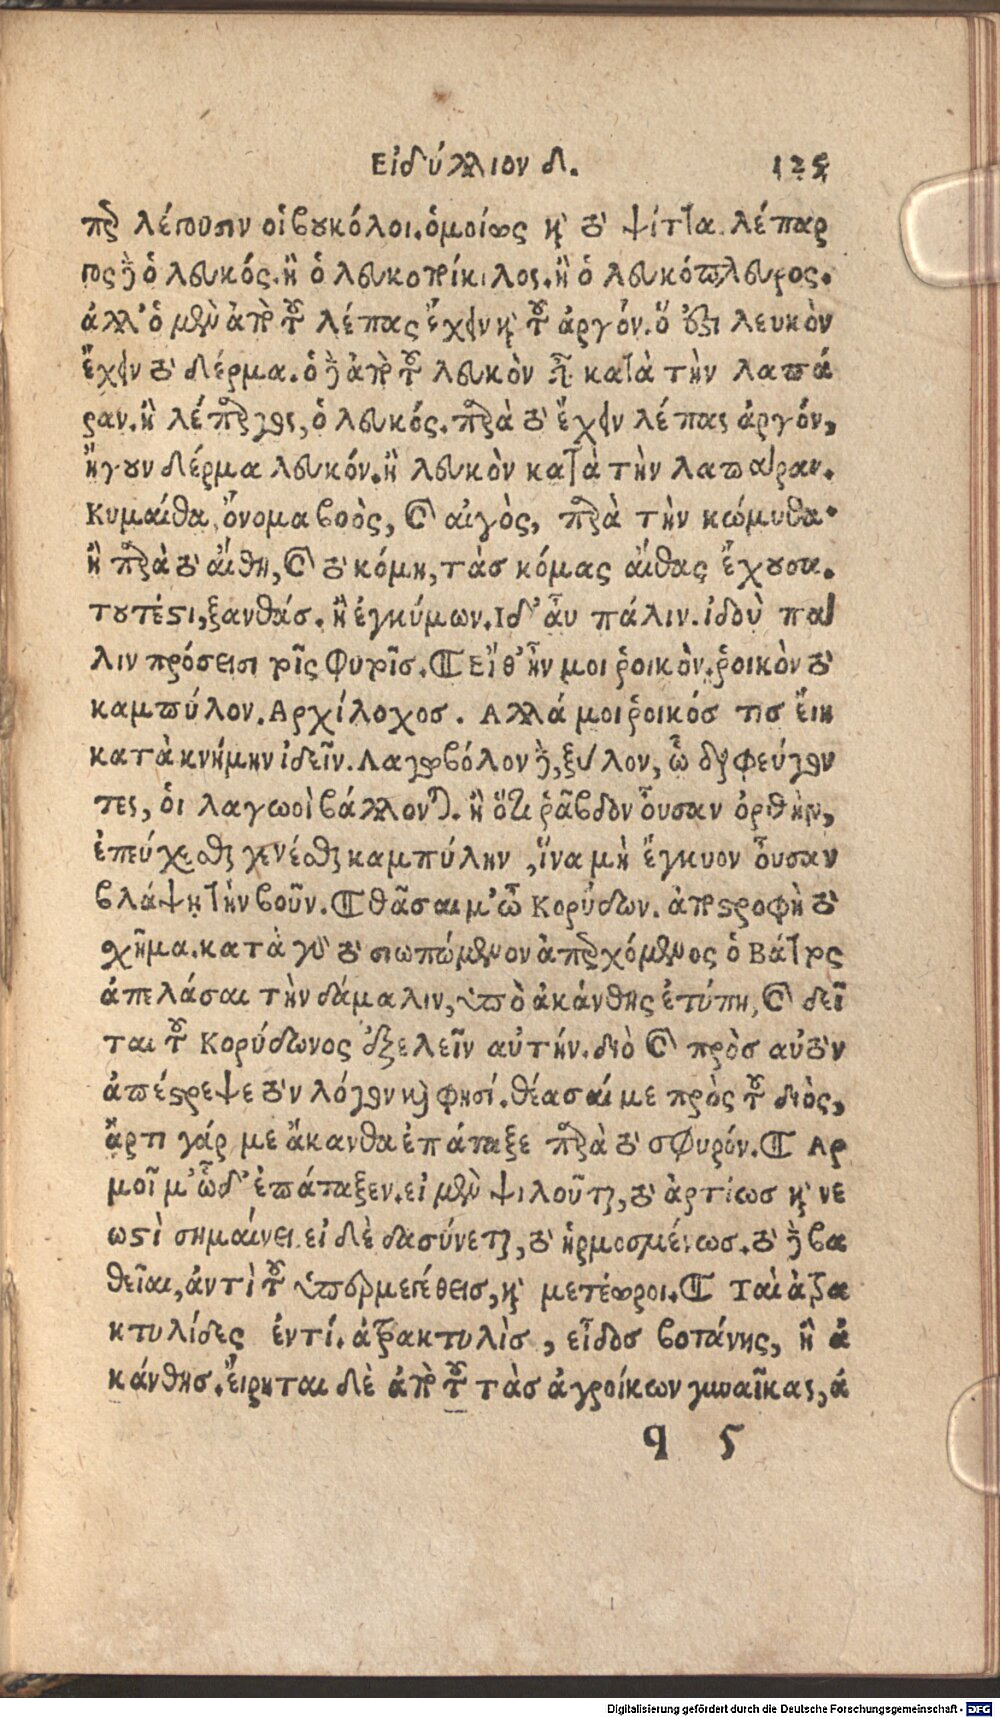 Εἰδύλλιον δ. 125
περ λέπουσιν οἱ βουκόλοι. ὁμοίως καὶ τὸ ψίττα λέπαρ
γος δὲ ὁ λευκός. ἢ ὁ λευκοποίκιλος. ἢ ὁ λευκόπλευρος.
ἀλλ' ὁ μὲν ἀπὸ τοῦ λέπας ἔχειν καὶ τοῦ ἀργόν. ὅ ἐστι λευκὸν
ἔχειν τὸ δέρμα. ὁ δὲ ἀπὸ τοῦ λευκὸν εἶναι κατὰ τὴν λαπά
ραν. ἢ λέπαργος, ὁ λευκός. παρὰ τὸ ἔχειν λέπας ἀργόν,
ἤγουν δέρμα λευκόν. ἢ λευκὸν κατὰ τὴν λαπάραν.
Κυμαίθα, ὄνομα βοὸς, καὶ αἰγὸς, παρὰ τὴν κώμυθα·
ἢ παρὰ τὸ αἴθη, καὶ τὸ κόμη, τὰσ κόμας αἴθας ἔχουσα.
τουτέστι, ξανθάσ. ἢ ἐγκύμων. Ιδ' ἆυ πάλιν. ἰδοὺ πά
λιν πρόσεισι ρῖς Φυρῖσ. ¶ Εἴθ' ἦν μοι ῥοικὸν. ῥοικὸν τὸ
καμπύλον. Αρχίλοχοσ. Αλλά μοι ῥοικόσ τισ εἴη
κατὰ κνήμην ἰδεῖν. Λαγωβόλον δὲ, ξύλον, ᾧ διαφεύγον
τες, ὁι λαγωοὶ βάλλονται. ἢ ὅτι ῥάβδον ὖουσαν ὀρθὴν,
ἐπεύχεσθαι γενέσθαι καμπύλην, ἵνα μὴ ἔγκυον ὖουσαν
βλάψῃ τὴν βοῦν. ¶ θᾶσαι μ' ὦ Κορύδων. ἀποστροφὴ τὸ
σχῆμα. κατὰ γὰρ τὸ σιωπώμενον ἀπερχόμενος ὁ Βάττος
ἀπελάσαι τὴν δάμαλιν, ὑπὸ ἀκάνθης ἐτύπη, καὶ δεῖ
ται τοῦ Κορύδωνος ἐξελεῖν αὐτήν. διὸ καὶ πρὸσ αὐτὸν
ἀπέστρεψε τὸν λόγον καὶ φησί. θέασαί με πρὸς τοῦ διὸς,
ἄρτι γάρ με ἄκανθα ἐπάταξε παρὰ τὸ σφυρόν. ¶ Αρ
μοῖ μ' ὧδ' ἐπάταξεν. εἰ μὲν ψιλοῦται, τὸ ἀρτίωσ καὶ νε
ωστὶ σημαίνει. εἰ δὲ δασύνεται, τὸ ἡρμοσμένωσ. τὸ δὲ βα
θεῖαι, ἀντὶ τοῦ ὑπερμεγέθεισ, καὶ μετέωροι. ¶ Ταὶ ἀτρα
κτυλίδες ἐντί. ἀτρακτυλὶσ, εἶδοσ βοτάνης, ἢ ἀ
κάνθησ. ἔιρηται δὲ ἀπὸ τοῦ τὰσ ἀγροίκων γυναῖκας, ἀ
q 5
Digitalisierung gefördert durch die Deutsche Forschungsgemeinschaft - DFG